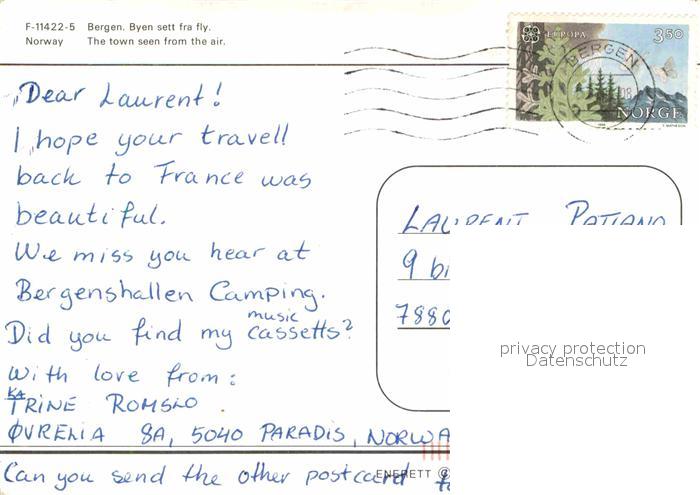 F-11422-5 Bergen. Byen sett fra fly.
Norway The town seen from the air.
EUROPA 3.50
BERGEN
08
NORGE
Dear Laurent!
I hope your travell
back to France was
beautiful.
We miss you hear at
Bergenshallen Camping.
Did you find my music cassetts?
With love from:
KATRINE ROMSLO.
ØVRELIA 8A, 5040 PARADIS, NORWA
Can you send the other postcard
LAURENT
9
7880
privacy protection
Datenschutz
ENERETT ©